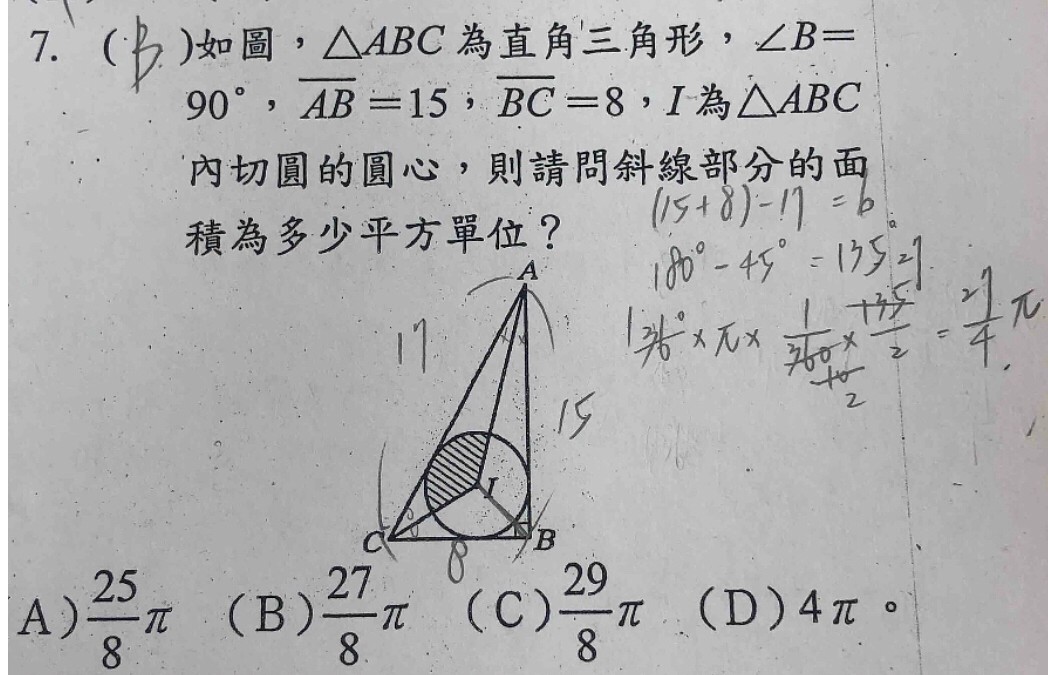 7. ( B )如圖，△ABC 為直角三角形，∠B=
90°，AB=15，BC=8，I 為△ABC
內切圓的圓心，則請問斜線部分的面
積為多少平方單位？
(15+8)-17 = 6
180° - 45° = 135°
27
× π × 1/360 × 135/2 = 27/4 π
10
2
A
17
15
I
C
B
8
A) 25/8 π (B) 27/8 π (C) 29/8 π (D) 4π。